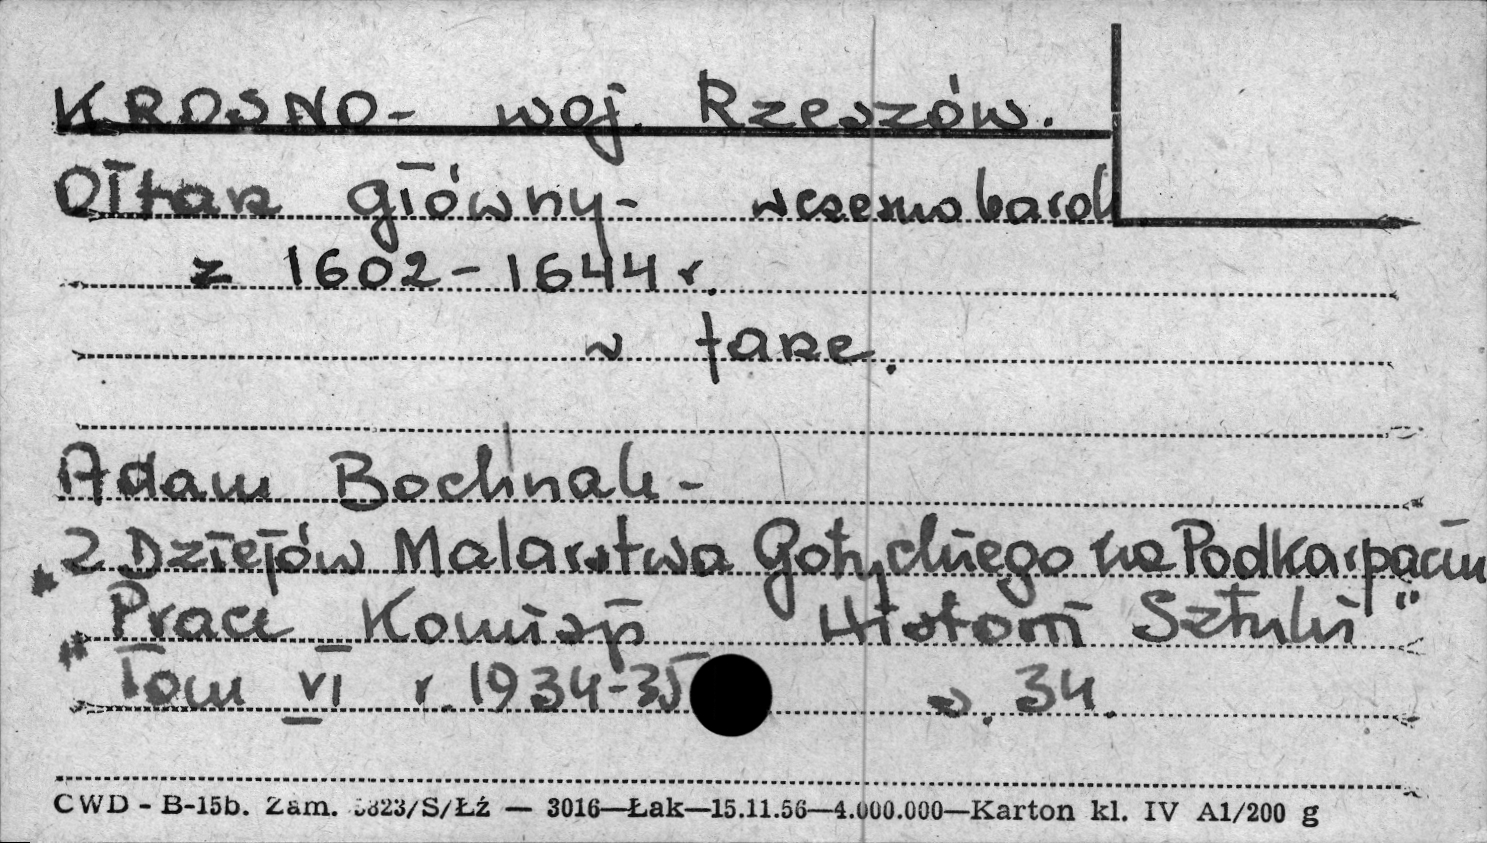 KROSNO - woj. Rzeszów.
Ołtarz główny - wczesnobarok
z 1602-1644 r.
w farze.
Adam Bochnak -
"Z Dziejów Malarstwa Gotyckiego na Podkarpaciu
"Prace Komisji Historii Sztuki"
Tom VI r. 1934-35 s. 34.
CWD - B-15b. Zam. 5823/S/Łź — 3016—Łak—15.11.56—4.000.000—Karton kl. IV A1/200 g